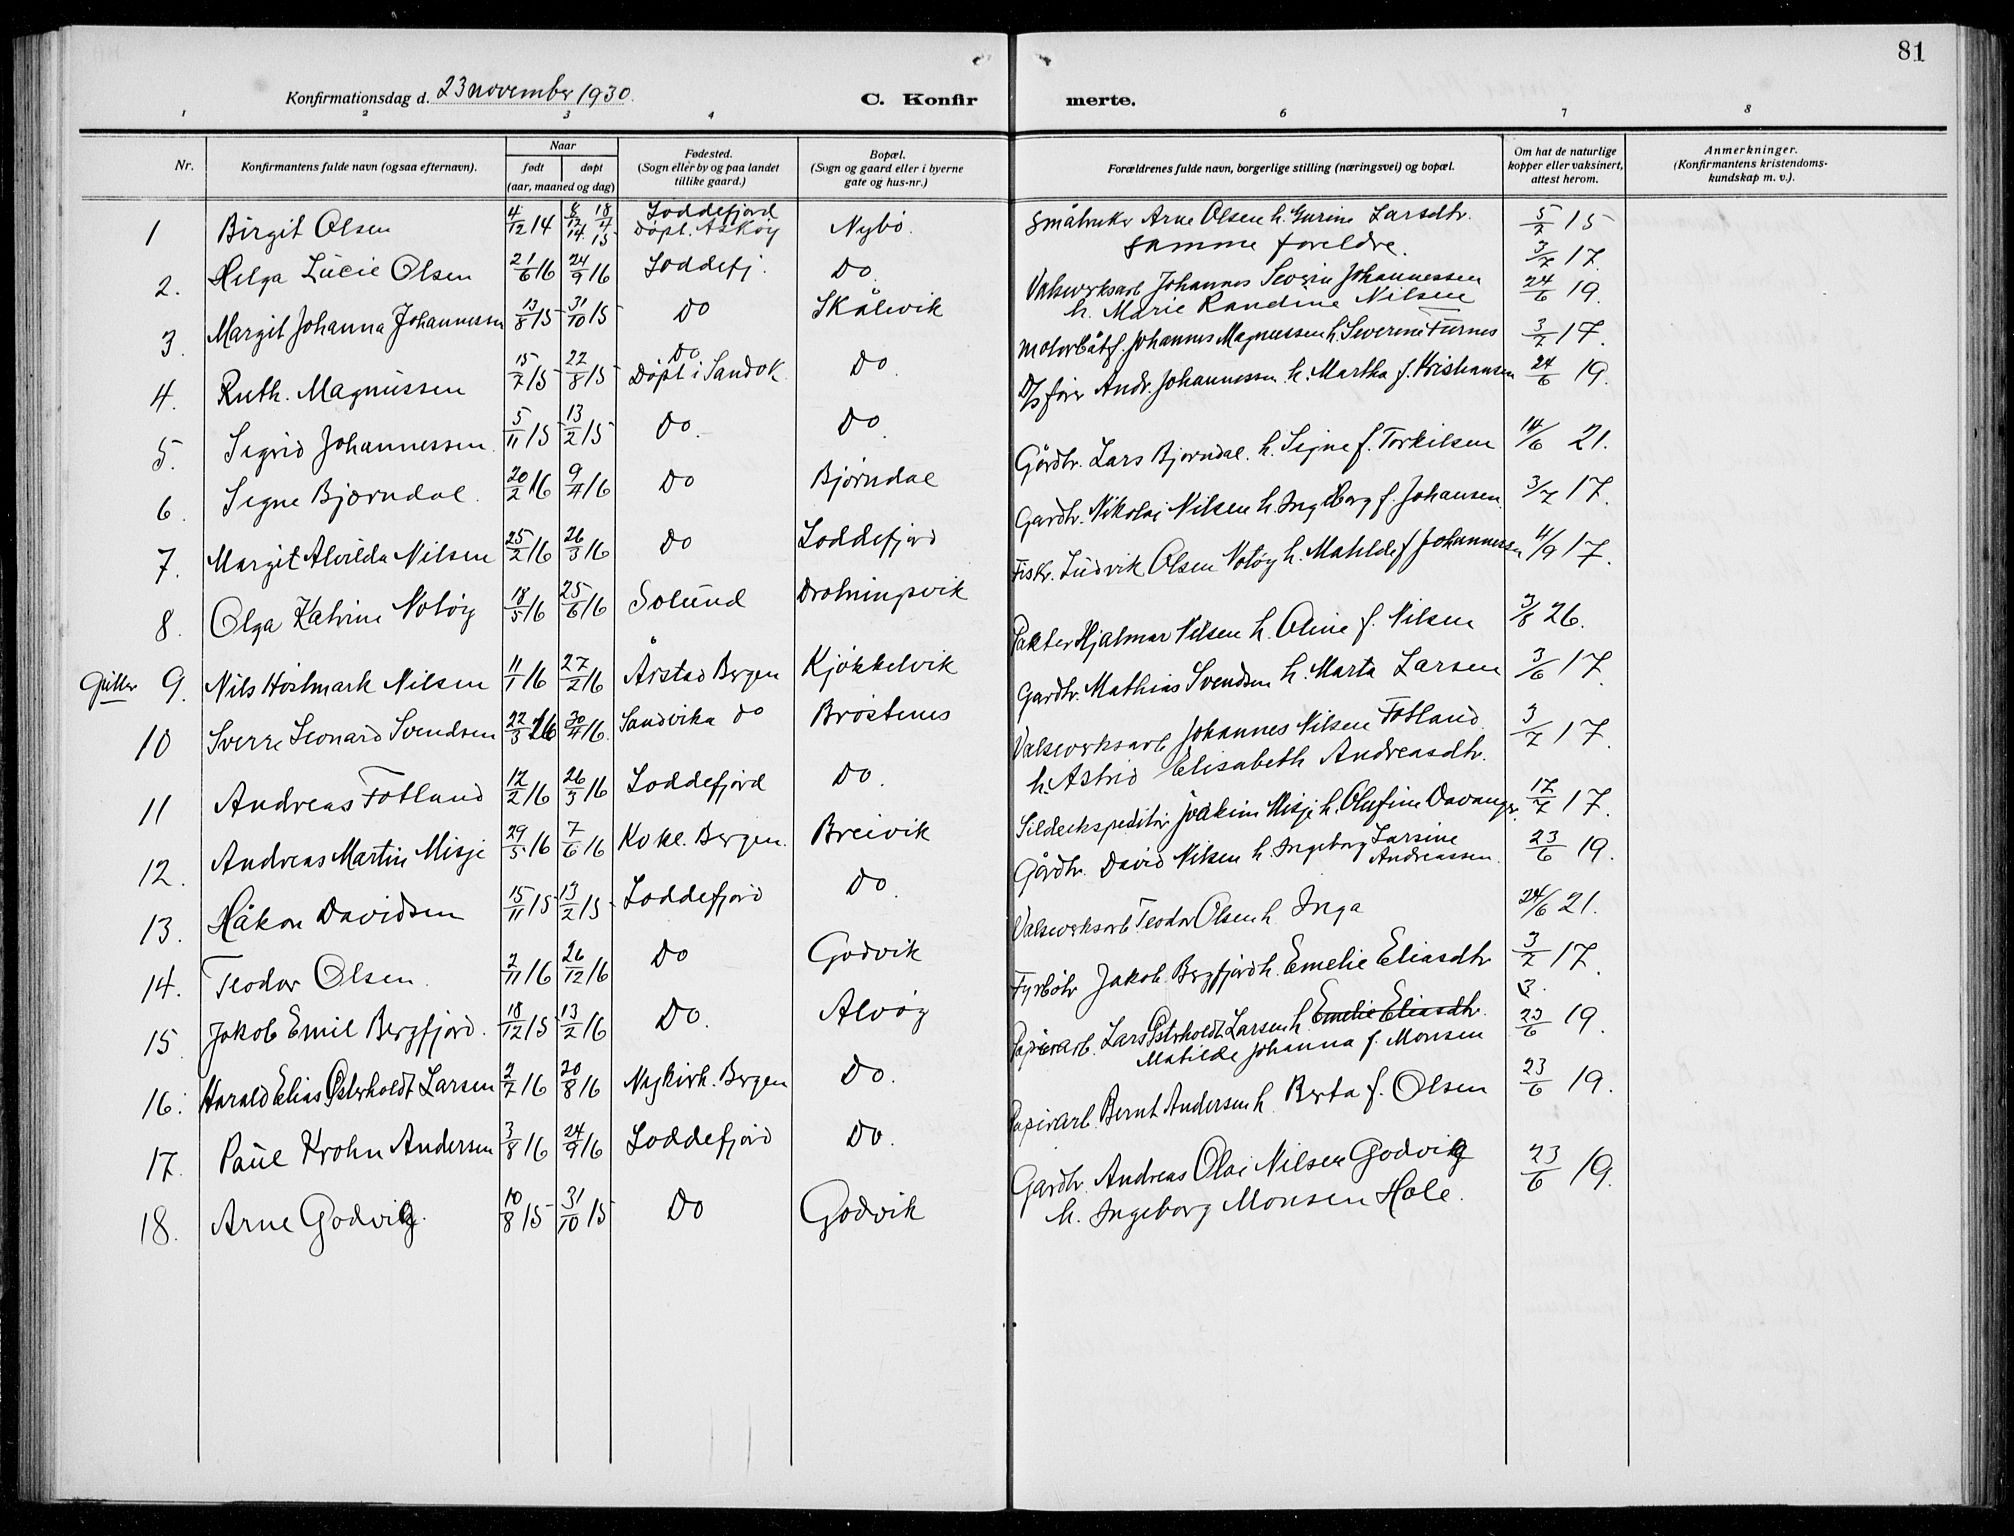 81
Konfirmationsdag d. 23 november 1930.
C. Konfir merte.
1 2 3 4 6 7 8
Nr.
Konfirmantens fulde navn (ogsaa efternavn).
Naar
født døpt
(aar, maaned og dag)
Fødested.
(Sogn eller by og paa landet
tillike gaard.)
Bopæl.
(Sogn og gaard eller i byerne
gate og hus-nr.)
Forældrenes fulde navn, borgerlige stilling (næringsvei) og bopæl.
Om hat de naturlige
kopper eller vaksinert,
attest herom.
Anmerkninger.
(Konfirmantens kristendoms-
kundskap m. v.).
1 Birgit Olsen 4/12 14 6/12 14. 18/4 15 Loddefjord Døpt. Askøy Nybø. Småbruker Arne Olsen h. Gurine Larsdtr. 5/2 15
2. Helga Lucie Olsen 21/6 16 24/9 16 Loddefj. Do. Samme foreldre. 3/7 17.
3. Margit Johanna Johannessen 13/8 15 31/10 15 Do Skålevik Valseverksarb Johannes Severin Johannessen 24/6 19.
h. Marie Randine Nilsen
4. Ruth. Magnussen 15/7 15 22/8 15 Do Døpt i Sandvk. Do. Motorbåtf. Johannes Magnussen h. Severine Furnes 3/7 17.
5. Sigrid Johannessen. 5/11 15 13/2 15 Do. Do. D/s fører Andr. Johannessen h. Martha f. Kristiansen 24/6 19.
6. Signe Bjørndal. 20/2 16 9/4 16 Do Bjørndal Gårdbr. Lars Bjørndal. h. Signe f. Torkilsen 14/6 21.
7. Margit Alvilda Nilsen 25/2 16 26/3 16 Do Loddefjord Gardbr. Nikolai Nilsen h. Ingeborg f. Johansen. 3/7 17.
8. Olga Katrine Notøy 18/5 16 25/6 16 Solund Drotningsvik Fiskr. Ludvik Olsen Notøy h. Matilde f. Johannessen 4/9 17.
Gutter 9. Nils Höstmark Nilsen 11/1 16 27/2 16 Årstad Bergen Kjøkkelvik Pakter Hjalmar Nilsen h. Oline f. Nilsen 3/8 26.
10 Sverre Leonard Svendsen 22/3 16 30/4 16. Sandvika do Brøstenes Gardbr. Mathias Svendsen h. Marta Larsen 3/6 17.
11 Andreas Fotland 12/2 16 26/3 16 Loddefjord Do. Valseverksarb Johannes Nilsen Fotland. 3/7 17.
h. Astrid Elisabeth Andreasdtr.
12. Andreas Martin Misje 29/5 16 7/6 16 Kokl. Bergen. Breivik Sildeekspeditør Joakim Misje h. Olufine Davanger 17/7 17.
13. Håkon Davidsen 15/11 15 13/2 15 Loddefjord Do. Gårdbr. David Nilsen h. Ingeborg Larsine Andreassen. 23/6 19.
14. Teodor Olsen. 2/11 16 26/12 16 Do Godvik Valseverksarb Teodor Olsen h. Inga 24/6 21.
15. Jakob Emil Bergfjord. 18/12 15 13/2 16 Do. Alvøy Fyrbötr Jakob Bergfjord h. Emelie Eliasdtr 3/7 17.
3.
16. Harald Elias Østerholdt Larsen 2/7 16 20/8 16 Nykirk. Bergen Do. Papirarb. Lars Østerholdt Larsen h. Emelie Eliasdtr. 23/6 19.
Matilde Johanna f. Monsen
17. Paul Krohn Andersen 3/8 16 24/9 16 Loddefjord Do. Papirarb Bernt Andersen h. Berta f. Olsen 23/6 19.
18. Arne Godvig. 10/8 15 31/10 15 Do Godvik Gardbr. Andreas Olai Nilsen Godvig 23/6 19.
h. Ingeborg Monsen Hole.